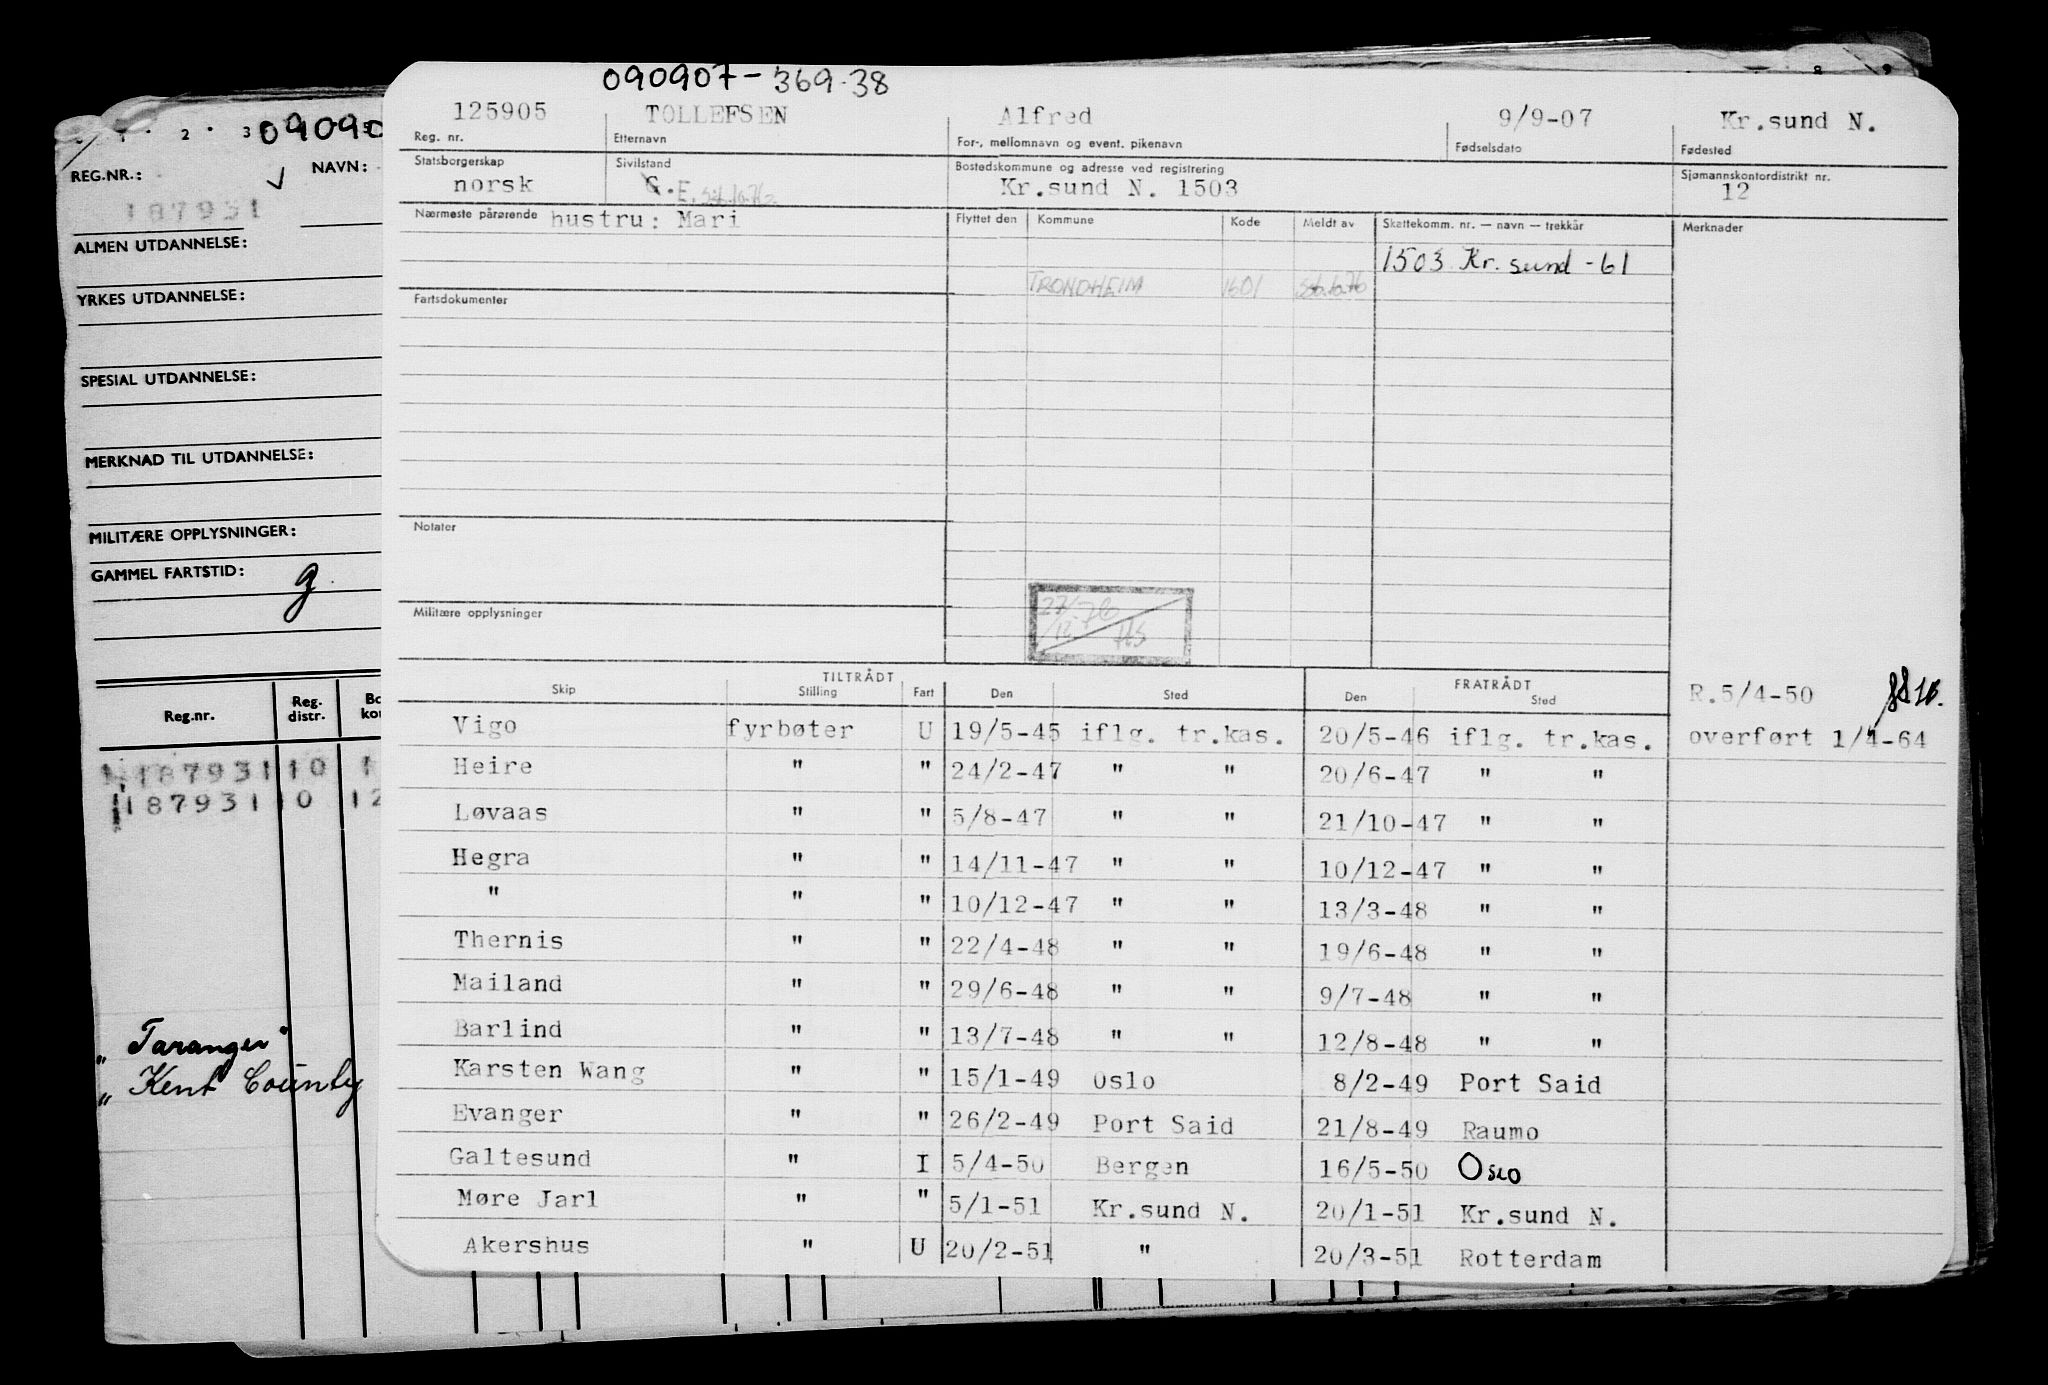 8 9
1 · 2 · 3
09090
REG.NR.:
NAVN:
187931
ALMEN UTDANNELSE:
YRKES UTDANNELSE:
SPESIAL UTDANNELSE:
MERKNAD TIL UTDANNELSE:
MILITÆRE OPPLYSNINGER:
GAMMEL FARTSTID: g
Reg.nr. Reg. distr.
187931 10 1
187931 10 12
" Taranger"
" Kent County
090907-369.38
125905 TOLLEFSEN Alfred 9/9-07 Kr.sund N.
Reg. nr. Etternavn For-, mellomnavn og event. pikenavn Fødselsdato Fødested
Statsborgerskap Sivilstand Bostedskommune og adresse ved registrering Sjømannskontordistrikt nr.
norsk G. E. Kr.sund N. 1503 12
Nærmeste pårørende hustru: Mari Flyttet den Kommune Kode Meldt av Skattekomm. nr. — navn — trekkår Merknader
1503 Kr. sund -61
TRONDHEIM 1601
Fartsdokumenter
Notater
27/12-76 HS
Militære opplysninger
TILTRÅDT FRATRÅDT
Skip Stilling Fart Den Sted Den Sted R.5/4-50
Vigo fyrbøter U 19/5-45 iflg. tr.kas. 20/5-46 iflg. tr.kas. overført 1/4-64
Heire " " 24/2-47 " " 20/6-47 " "
Løvaas " " 5/8-47 " " 21/10-47 " "
Hegra " " 14/11-47 " " 10/12-47 " "
" " " 10/12-47 " " 13/3-48 " "
Thernis " " 22/4-48 " " 19/6-48 " "
Mailand " " 29/6-48 " " 9/7-48 " "
Barlind " " 13/7-48 " " 12/8-48 " "
Karsten Wang " " 15/1-49 Oslo 8/2-49 Port Said
Evanger " " 26/2-49 Port Said 21/8-49 Raumo
Galtesund " I 5/4-50 Bergen 16/5-50 Oslo
Møre Jarl " " 5/1-51 Kr.sund N. 20/1-51 Kr.sund N.
Akershus " U 20/2-51 " 20/3-51 Rotterdam